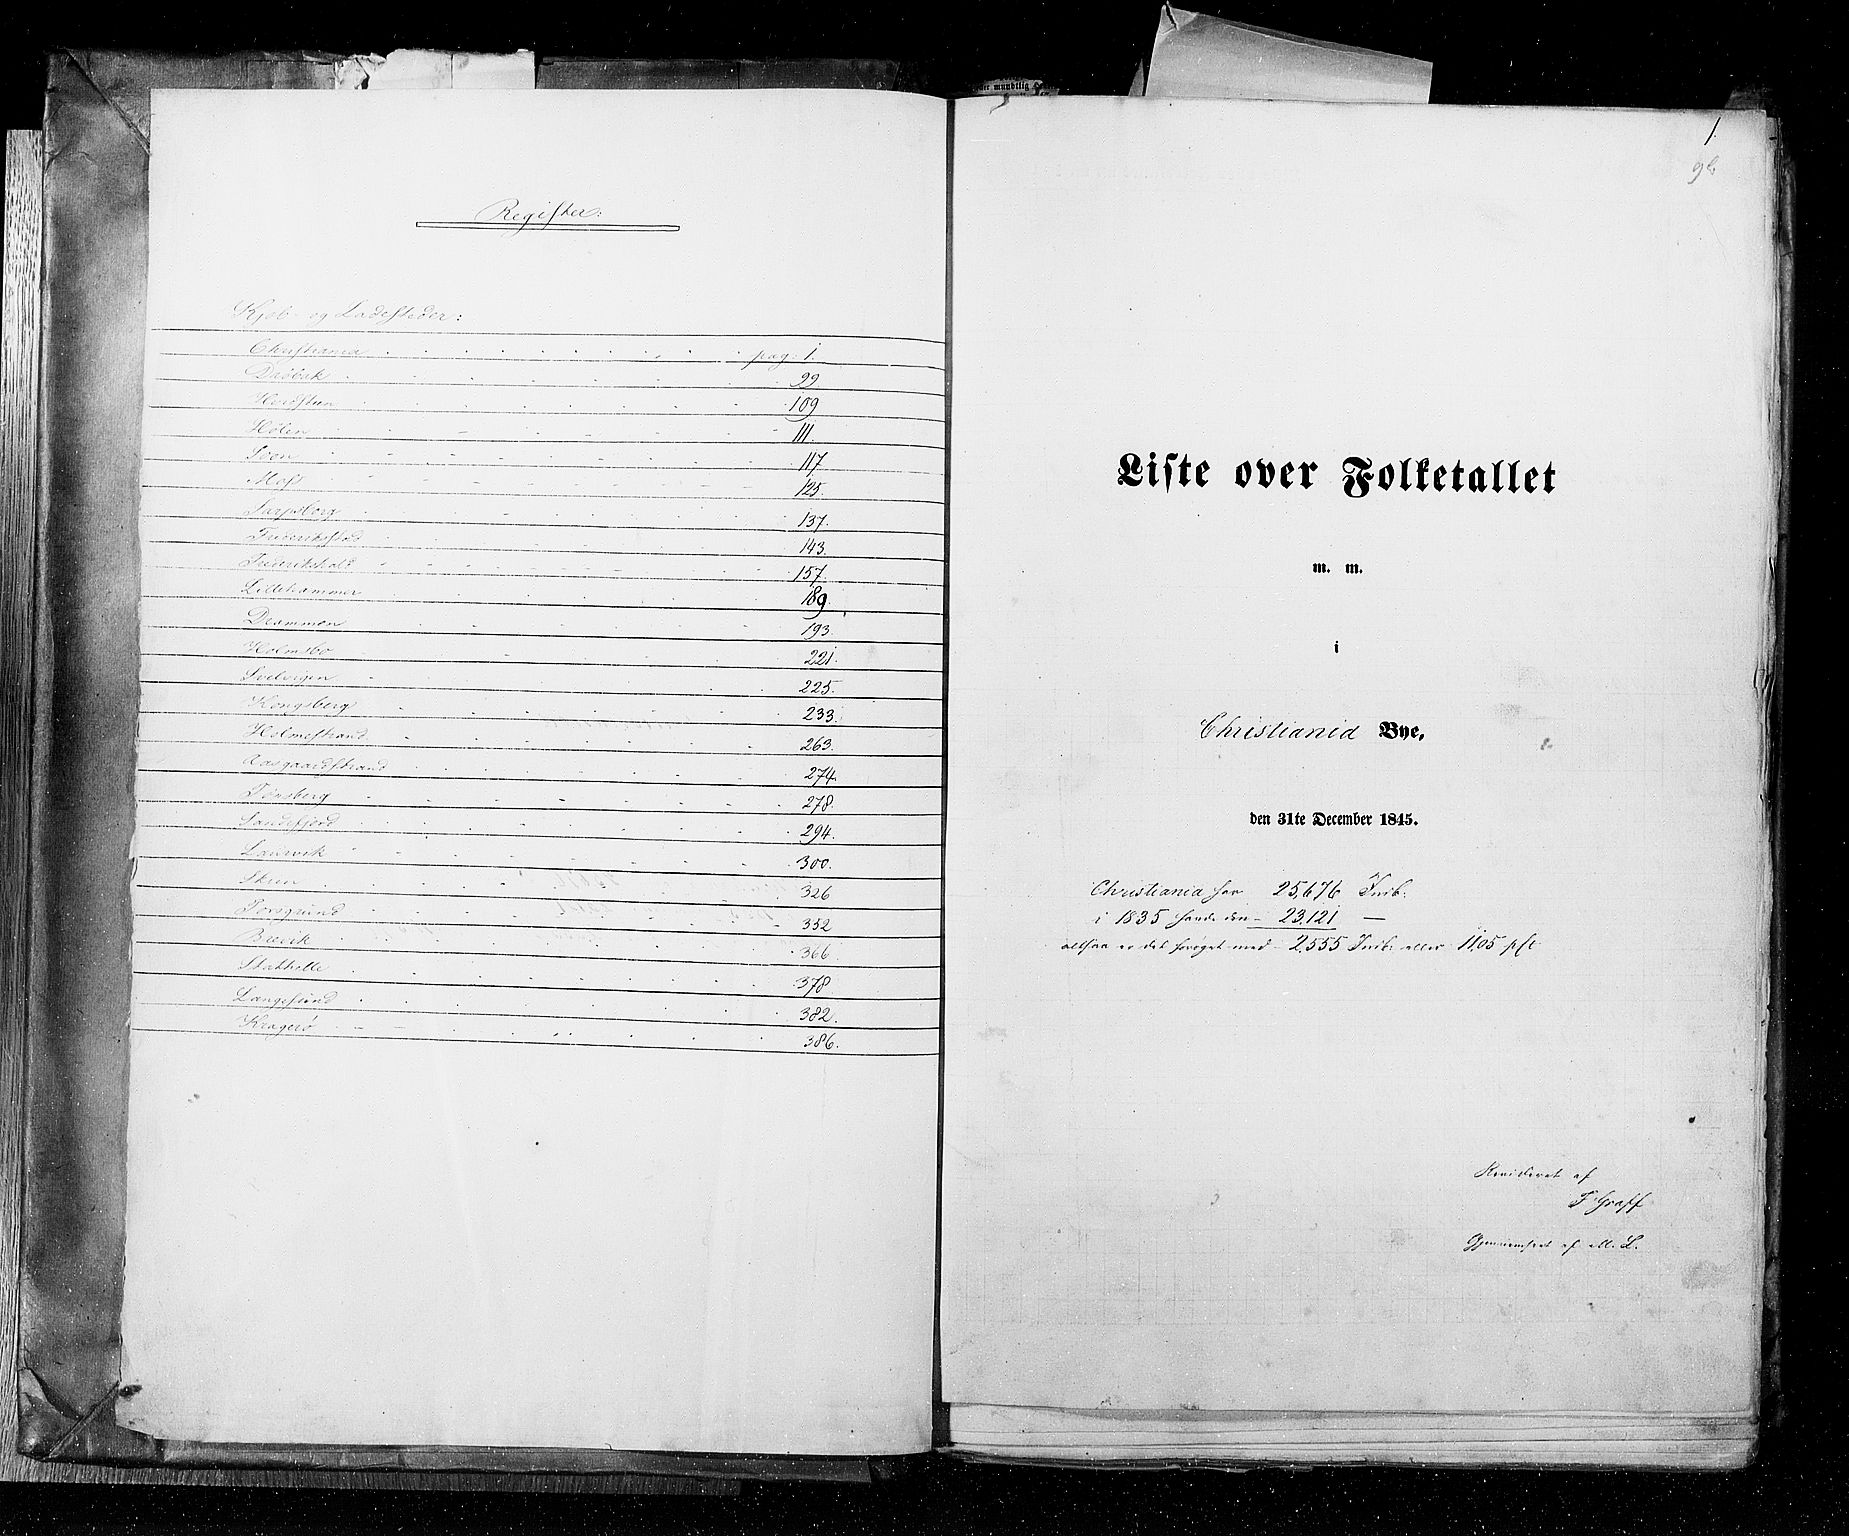 Register:
Kjøb- og Ladesteder:
Christiania pag: 1.
Drøbak 99
Hvidsteen 109
Hølen 111.
Soon 117
Moss 125.
Sarpsborg 137.
Frederikstad 143.
Frederikshald 157.
Lillehammer 189.
Drammen 193.
Holmsbo 221.
Svelvigen 225.
Kongsberg 233.
Holmestrand 263.
Aasgaardstrand 274.
Tønsberg 278.
Sandefjord 294.
Laurvik 300.
Skien 326
Porsgrund 352
Brevik 366.
Stathelle 378
Langesund 382.
Kragerø 386.
1.
Liste over Folketallet
m. m.
i
Christiania Bye,
den 31te December 1845.
Christiania har 25,676 Indb.
i 1835 havde den - 23,121 —
altsaa er det forøget med - 2,555 Indb. eller 11,05 pCt
Revideret af
F Graff
Gjennemseet af M. L.